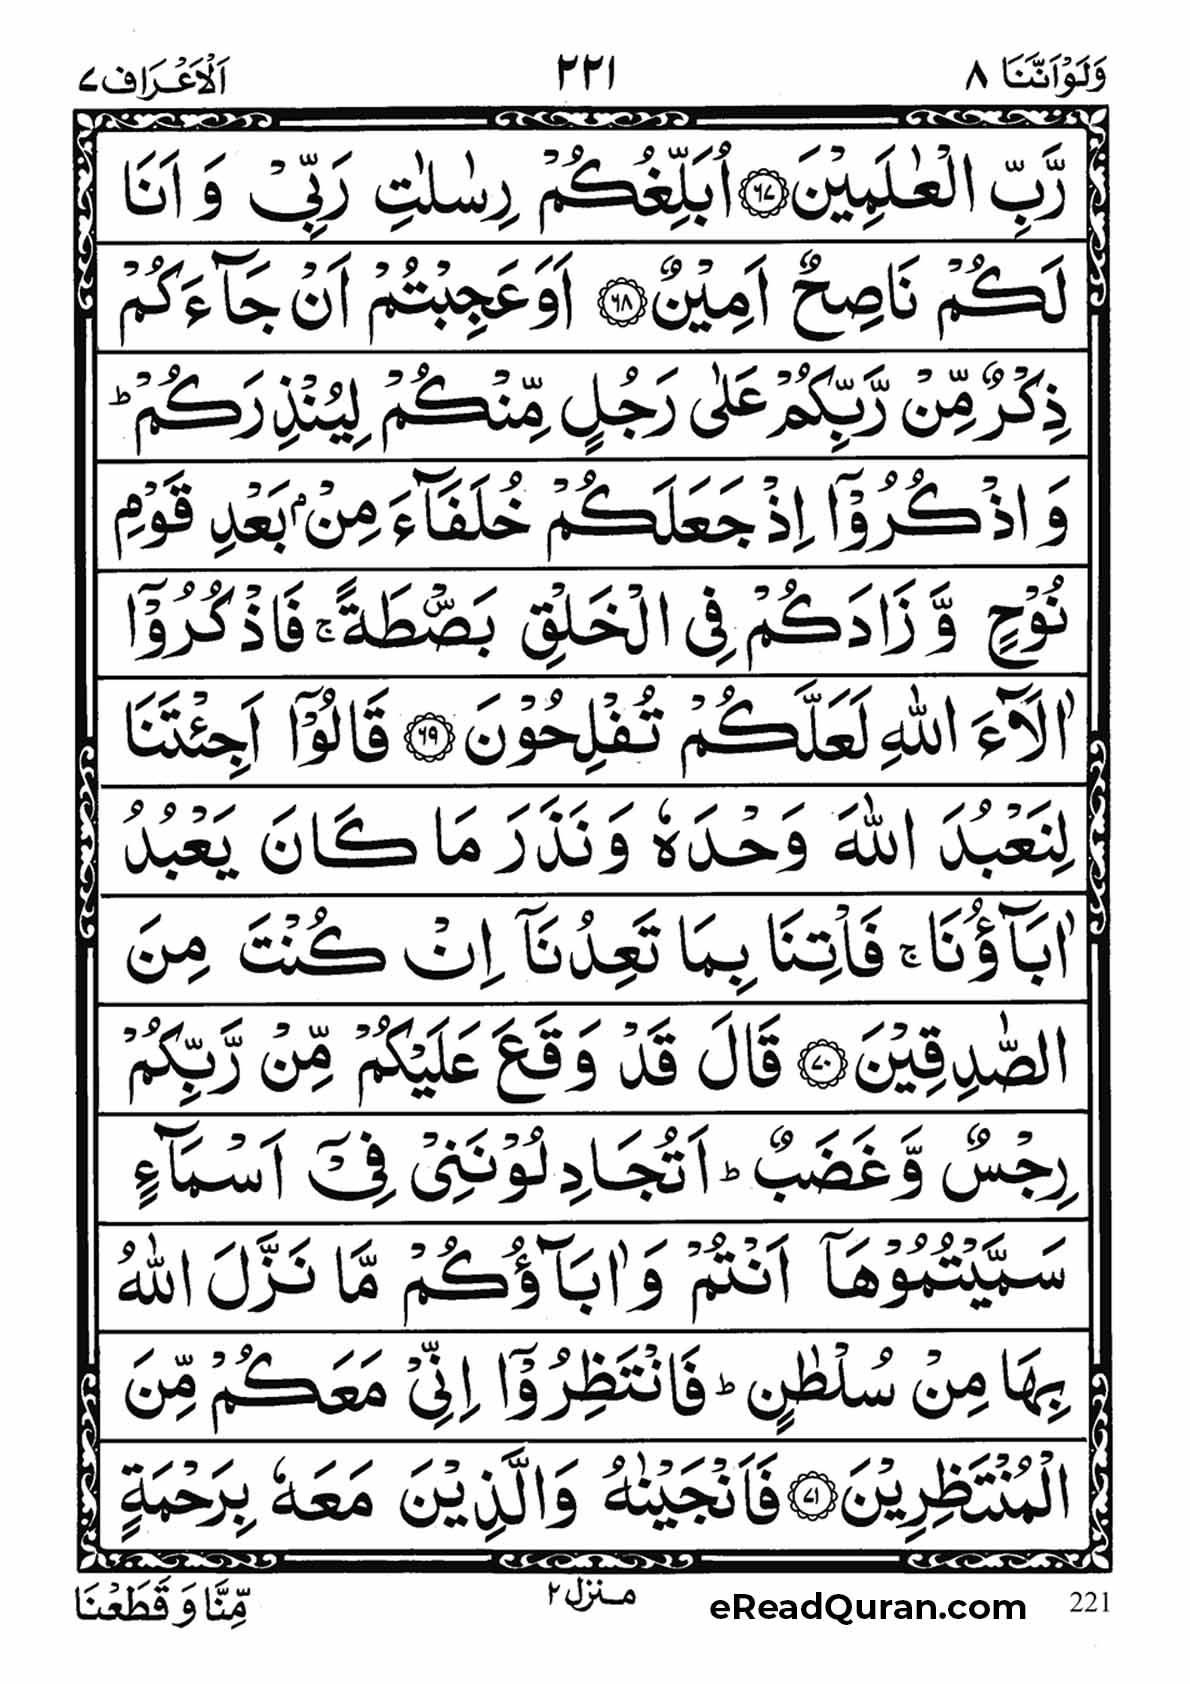 وَلَوْاَنَّنَا ٨
٢٢١
اَلْاَعْرَاف ٧
رَّبِّ الْعٰلَمِيْنَ ﴿٦٧﴾ اُبَلِّغُكُمْ رِسٰلٰتِ رَبِّيْ وَ اَنَا
لَكُمْ نَاصِحٌ اَمِيْنٌ ﴿٦٨﴾ اَوَعَجِبْتُمْ اَنْ جَآءَكُمْ
ذِكْرٌ مِّنْ رَّبِّكُمْ عَلٰى رَجُلٍ مِّنْكُمْ لِيُنْذِرَكُمْ ؕ
وَ اذْكُرُوْۤا اِذْ جَعَلَكُمْ خُلَفَآءَ مِنْۢ بَعْدِ قَوْمِ
نُوْحٍ وَّ زَادَكُمْ فِي الْخَلْقِ بَصْۜطَةً ۚ فَاذْكُرُوْۤا
اٰلَآءَ اللّٰهِ لَعَلَّكُمْ تُفْلِحُوْنَ ﴿٦٩﴾ قَالُوْۤا اَجِئْتَنَا
لِنَعْبُدَ اللّٰهَ وَحْدَهٗ وَ نَذَرَ مَا كَانَ يَعْبُدُ
اٰبَآؤُنَا ۚ فَاْتِنَا بِمَا تَعِدُنَاۤ اِنْ كُنْتَ مِنَ
الصّٰدِقِيْنَ ﴿٧٠﴾ قَالَ قَدْ وَقَعَ عَلَيْكُمْ مِّنْ رَّبِّكُمْ
رِجْسٌ وَّ غَضَبٌ ؕ اَتُجَادِلُوْنَنِيْ فِيْۤ اَسْمَآءٍ
سَمَّيْتُمُوْهَاۤ اَنْتُمْ وَ اٰبَآؤُكُمْ مَّا نَزَّلَ اللّٰهُ
بِهَا مِنْ سُلْطٰنٍ ؕ فَانْتَظِرُوْۤا اِنِّيْ مَعَكُمْ مِّنَ
الْمُنْتَظِرِيْنَ ﴿٧١﴾ فَاَنْجَيْنٰهُ وَالَّذِيْنَ مَعَهٗ بِرَحْمَةٍ
221
eReadQuran.com
منزل ٢
مِّنَّا وَ قَطَعْنَا